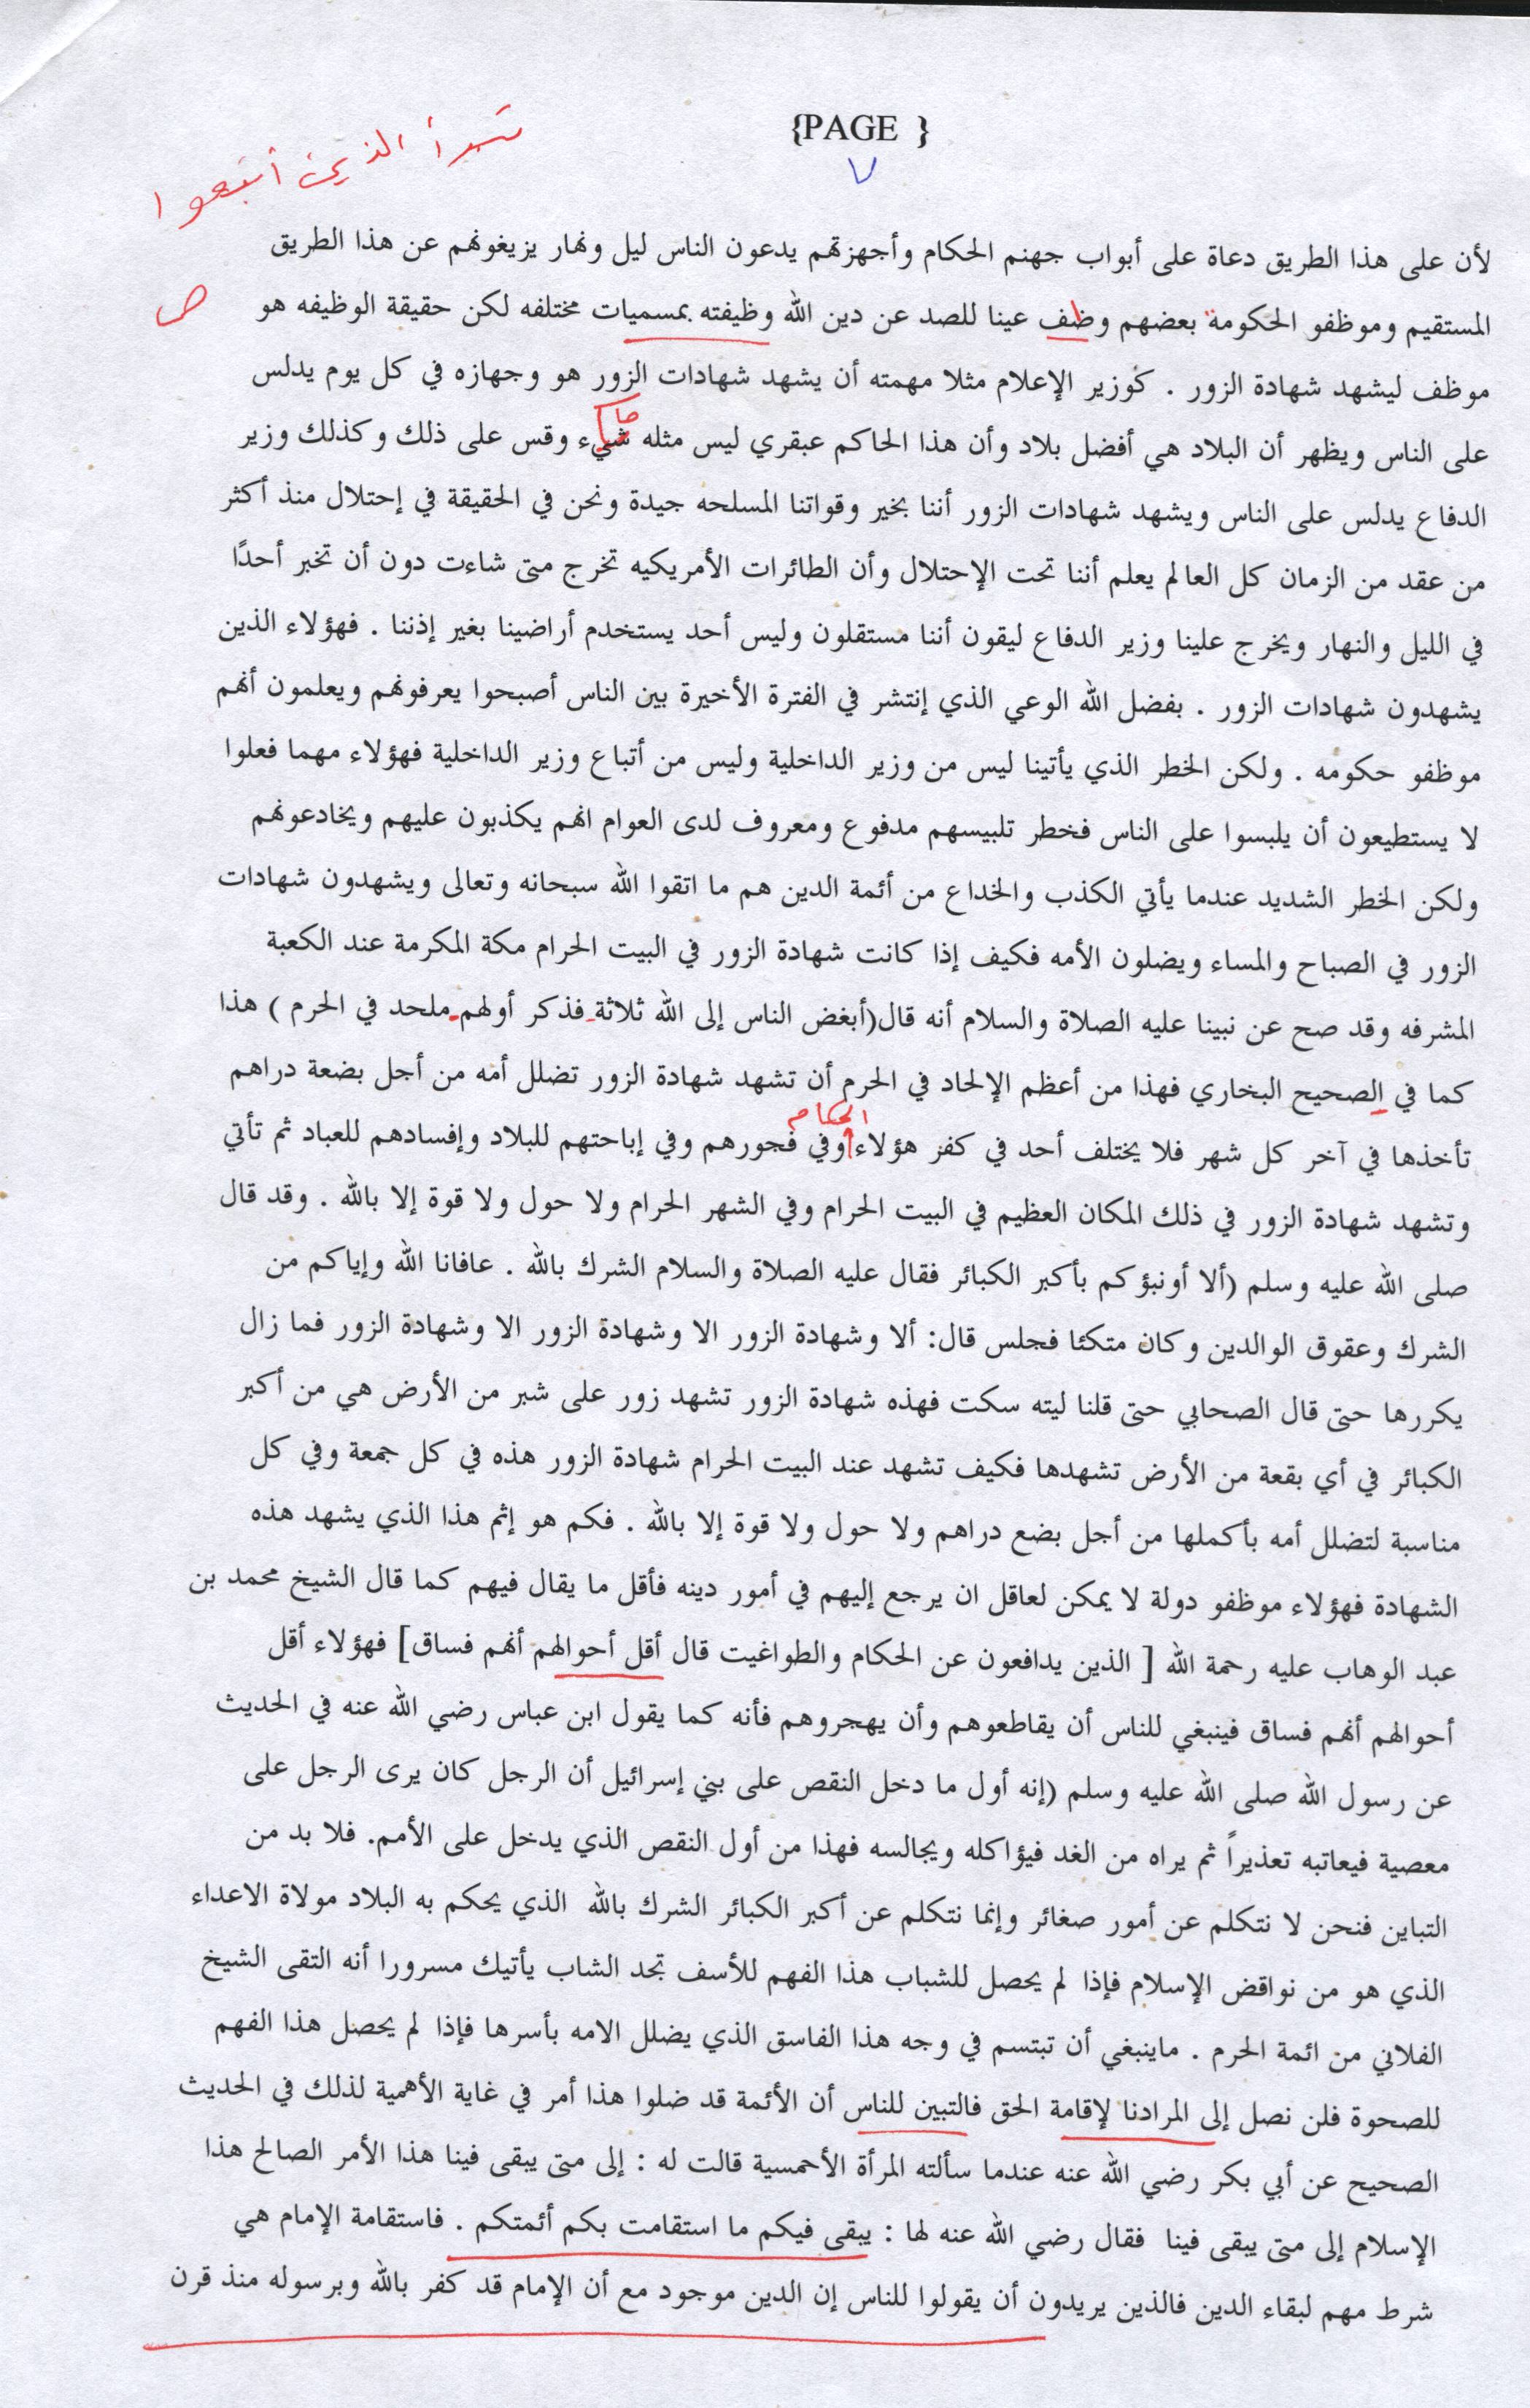 {PAGE }
٧
تبرأ الذين أتبعوا
لأن على هذا الطريق دعاة على أبواب جهنم الحكام وأجهزتهم يدعون الناس ليل ونهار يزيغونهم عن هذا الطريق
ص
المستقيم وموظفو الحكومة بعضهم وظف عينا للصد عن دين الله وظيفته بمسميات مختلفه لكن حقيقة الوظيفه هو
موظف ليشهد شهادة الزور . كوزير الإعلام مثلا مهمته أن يشهد شهادات الزور هو وجهازه في كل يوم يدلس
على الناس ويظهر أن البلاد هي أفضل بلاد وأن هذا الحاكم عبقري ليس مثله شيء وقس على ذلك وكذلك وزير
الدفاع يدلس على الناس ويشهد شهادات الزور أننا بخير وقواتنا المسلحه جيدة ونحن في الحقيقة في إحتلال منذ أكثر
من عقد من الزمان كل العالم يعلم أننا تحت الإحتلال وأن الطائرات الأمريكيه تخرج متى شاءت دون أن تخبر أحدًا
في الليل والنهار ويخرج علينا وزير الدفاع ليقون أننا مستقلون وليس أحد يستخدم أراضينا بغير إذننا . فهؤلاء الذين
يشهدون شهادات الزور . بفضل الله الوعي الذي إنتشر في الفترة الأخيرة بين الناس أصبحوا يعرفونهم ويعلمون أنهم
موظفو حكومه . ولكن الخطر الذي يأتينا ليس من وزير الداخلية وليس من أتباع وزير الداخلية فهؤلاء مهما فعلوا
لا يستطيعون أن يلبسوا على الناس فخطر تلبيسهم مدفوع ومعروف لدى العوام انهم يكذبون عليهم ويخادعونهم
ولكن الخطر الشديد عندما يأتي الكذب والخداع من أئمة الدين هم ما اتقوا الله سبحانه وتعالى ويشهدون شهادات
الزور في الصباح والمساء ويضلون الأمه فكيف إذا كانت شهادة الزور في البيت الحرام مكة المكرمة عند الكعبة
المشرفه وقد صح عن نبينا عليه الصلاة والسلام أنه قال(أبغض الناس إلى الله ثلاثة فذكر أولهم ملحد في الحرم ) هذا
كما في الصحيح البخاري فهذا من أعظم الإلحاد في الحرم أن تشهد شهادة الزور تضلل أمه من أجل بضعة دراهم
الحكام
تأخذها في آخر كل شهر فلا يختلف أحد في كفر هؤلاء وفي فجورهم وفي إباحتهم للبلاد وإفسادهم للعباد ثم تأتي
وتشهد شهادة الزور في ذلك المكان العظيم في البيت الحرام وفي الشهر الحرام ولا حول ولا قوة إلا بالله . وقد قال
صلى الله عليه وسلم (ألا أونبؤكم بأكبر الكبائر فقال عليه الصلاة والسلام الشرك بالله . عافانا الله وإياكم من
الشرك وعقوق الوالدين وكان متكئا فجلس قال: ألا وشهادة الزور الا وشهادة الزور الا وشهادة الزور فما زال
يكررها حتى قال الصحابي حتى قلنا ليته سكت فهذه شهادة الزور تشهد زور على شبر من الأرض هي من أكبر
الكبائر في أي بقعة من الأرض تشهدها فكيف تشهد عند البيت الحرام شهادة الزور هذه في كل جمعة وفي كل
مناسبة لتضلل أمه بأكملها من أجل بضع دراهم ولا حول ولا قوة إلا بالله . فكم هو إثم هذا الذي يشهد هذه
الشهادة فهؤلاء موظفو دولة لا يمكن لعاقل ان يرجع إليهم في أمور دينه فأقل ما يقال فيهم كما قال الشيخ محمد بن
عبد الوهاب عليه رحمة الله [ الذين يدافعون عن الحكام والطواغيت قال أقل أحوالهم أنهم فساق] فهؤلاء أقل
أحوالهم أنهم فساق فينبغي للناس أن يقاطعوهم وأن يهجروهم فأنه كما يقول ابن عباس رضي الله عنه في الحديث
عن رسول الله صلى الله عليه وسلم (إنه أول ما دخل النقص على بني إسرائيل أن الرجل كان يرى الرجل على
معصية فيعاتبه تعذيراً ثم يراه من الغد فيؤاكله ويجالسه فهذا من أول النقص الذي يدخل على الأمم. فلا بد من
التباين فنحن لا نتكلم عن أمور صغائر وإنما نتكلم عن أكبر الكبائر الشرك بالله الذي يحكم به البلاد مولاة الاعداء
الذي هو من نواقض الإسلام فإذا لم يحصل للشباب هذا الفهم للأسف تجد الشاب يأتيك مسرورا أنه التقى الشيخ
الفلاني من ائمة الحرم . ماينبغي أن تبتسم في وجه هذا الفاسق الذي يضلل الامه بأسرها فإذا لم يحصل هذا الفهم
للصحوة فلن نصل إلى المرادنا لإقامة الحق فالتبين للناس أن الأئمة قد ضلوا هذا أمر في غاية الأهمية لذلك في الحديث
الصحيح عن أبي بكر رضي الله عنه عندما سألته المرأة الأحمسية قالت له : إلى متى يبقى فينا هذا الأمر الصالح هذا
الإسلام إلى متى يبقى فينا فقال رضي الله عنه لها : يبقى فيكم ما استقامت بكم أئمتكم . فاستقامة الإمام هي
شرط مهم لبقاء الدين فالذين يريدون أن يقولوا للناس إن الدين موجود مع أن الإمام قد كفر بالله وبرسوله منذ قرن